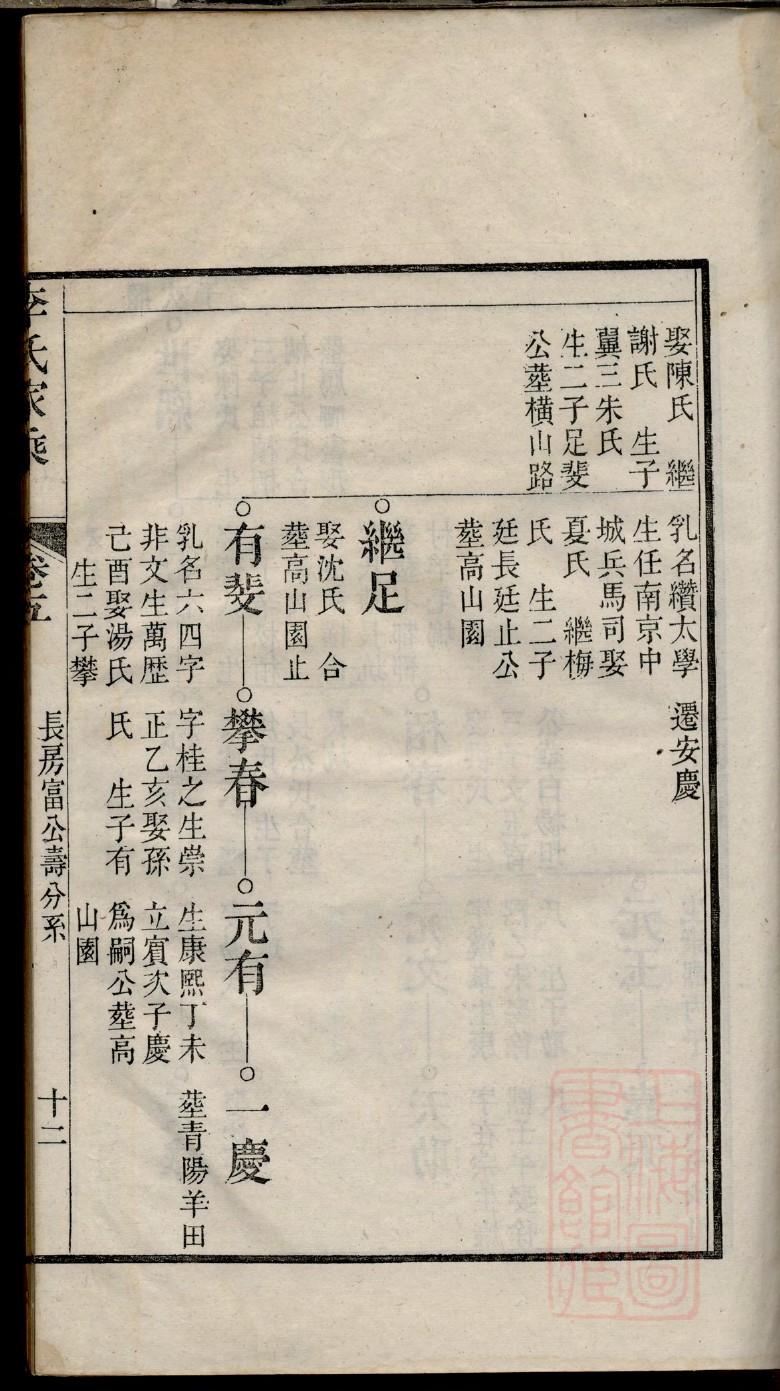 娶陳氏 繼
謝氏 生子
翼三朱氏
生二子足斐
公塟橫山路
乳名纘太學
生任南京中
城兵馬司娶
夏氏 繼梅
氏 生二子
廷長廷止公
塟高山園
遷安慶
繼足
娶沈氏 合
塟高山園止
有斐
乳名六四字
非文生萬歷
己酉娶湯氏
生二子攀
攀春
字桂之生崇
正乙亥娶孫
氏 生子有
元有
生康熙丁未
立賓次子慶
爲嗣公塟高
山園
一慶
塟青陽羊田
李氏家乘
卷五
長房富公壽分系
十二
上海圖書館藏